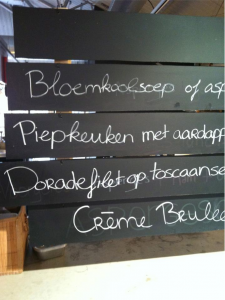 Bloemkoolsoep of asp
Piepkeuken met aardapp
Doradefilet op toscaanse
Crème Brulee